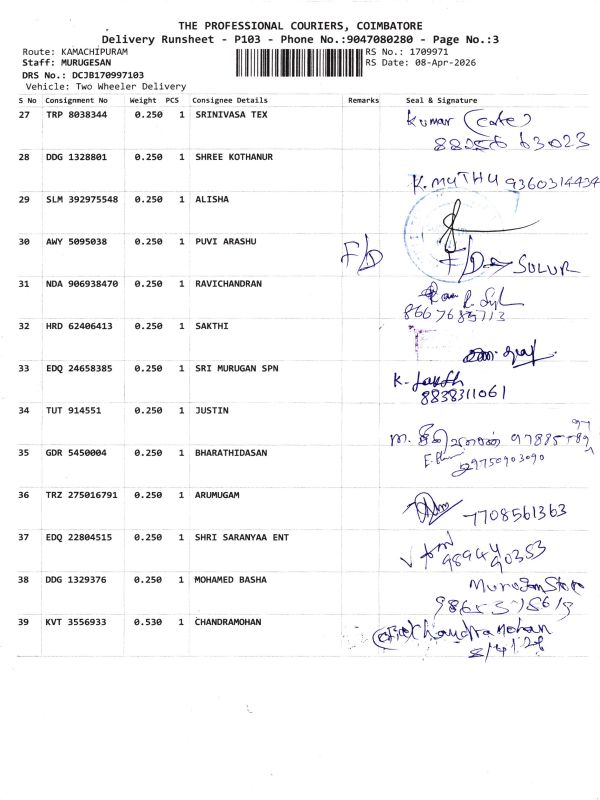 THE PROFESSIONAL COURIERS, COIMBATORE
Delivery Runsheet - P103 - Phone No.:9047080280 - Page No.:3
Route: KAMACHIPURAM RS No.: 1709971
Staff: MURUGESAN RS Date: 08-Apr-2026
DRS No.: DCJB170997103
Vehicle: Two Wheeler Delivery
S No Consignment No Weight PCS Consignee Details Remarks Seal & Signature
27 TRP 8038344 0.250 1 SRINIVASA TEX Kumar
63023
28 DDG 1328801 0.250 1 SHREE KOTHANUR
K. MUTHU 9360314434
29 SLM 392975548 0.250 1 ALISHA
30 AWY 5095038 0.250 1 PUVI ARASHU F/D F/D SULUR
31 NDA 906938470 0.250 1 RAVICHANDRAN
32 HRD 62406413 0.250 1 SAKTHI
33 EDQ 24658385 0.250 1 SRI MURUGAN SPN K.
8838311061
34 TUT 914551 0.250 1 JUSTIN
35 GDR 5450004 0.250 1 BHARATHIDASAN
9750903090
36 TRZ 275016791 0.250 1 ARUMUGAM
7708561363
37 EDQ 22804515 0.250 1 SHRI SARANYAA ENT
38 DDG 1329376 0.250 1 MOHAMED BASHA
39 KVT 3556933 0.530 1 CHANDRAMOHAN Chandramohan